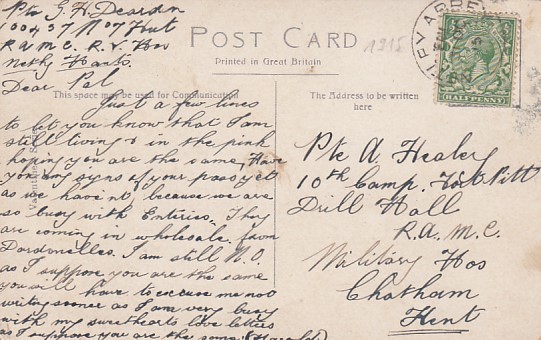 Pte G. H. Deardon
100437 No 7 Hut
R.A.M.C. R.V. Hos
Netley Hants.
Dear Pal
Just a few lines
to let you know that I am
still living & in the pink
hoping you are the same. Have
you any signs of your pass yet
as we haven't because we are
so busy with Enterics. They
are coming in wholesale from
Dardanelles. I am still N.O.
as I suppose you are the same
you will have to excuse me not
writing sooner as I am very busy
with my sweethearts love letters
as I suppose you are the same (Harold)
POST CARD
Printed in Great Britain
This space may be used for Communication
The Address to be written
here
1915
NETLEY ABBEY
HALF PENNY
Pte A. Healey
10th Comp. Fort Pitt
Drill Hall
R.A.M.C.
Military Hos
Chatham
Kent